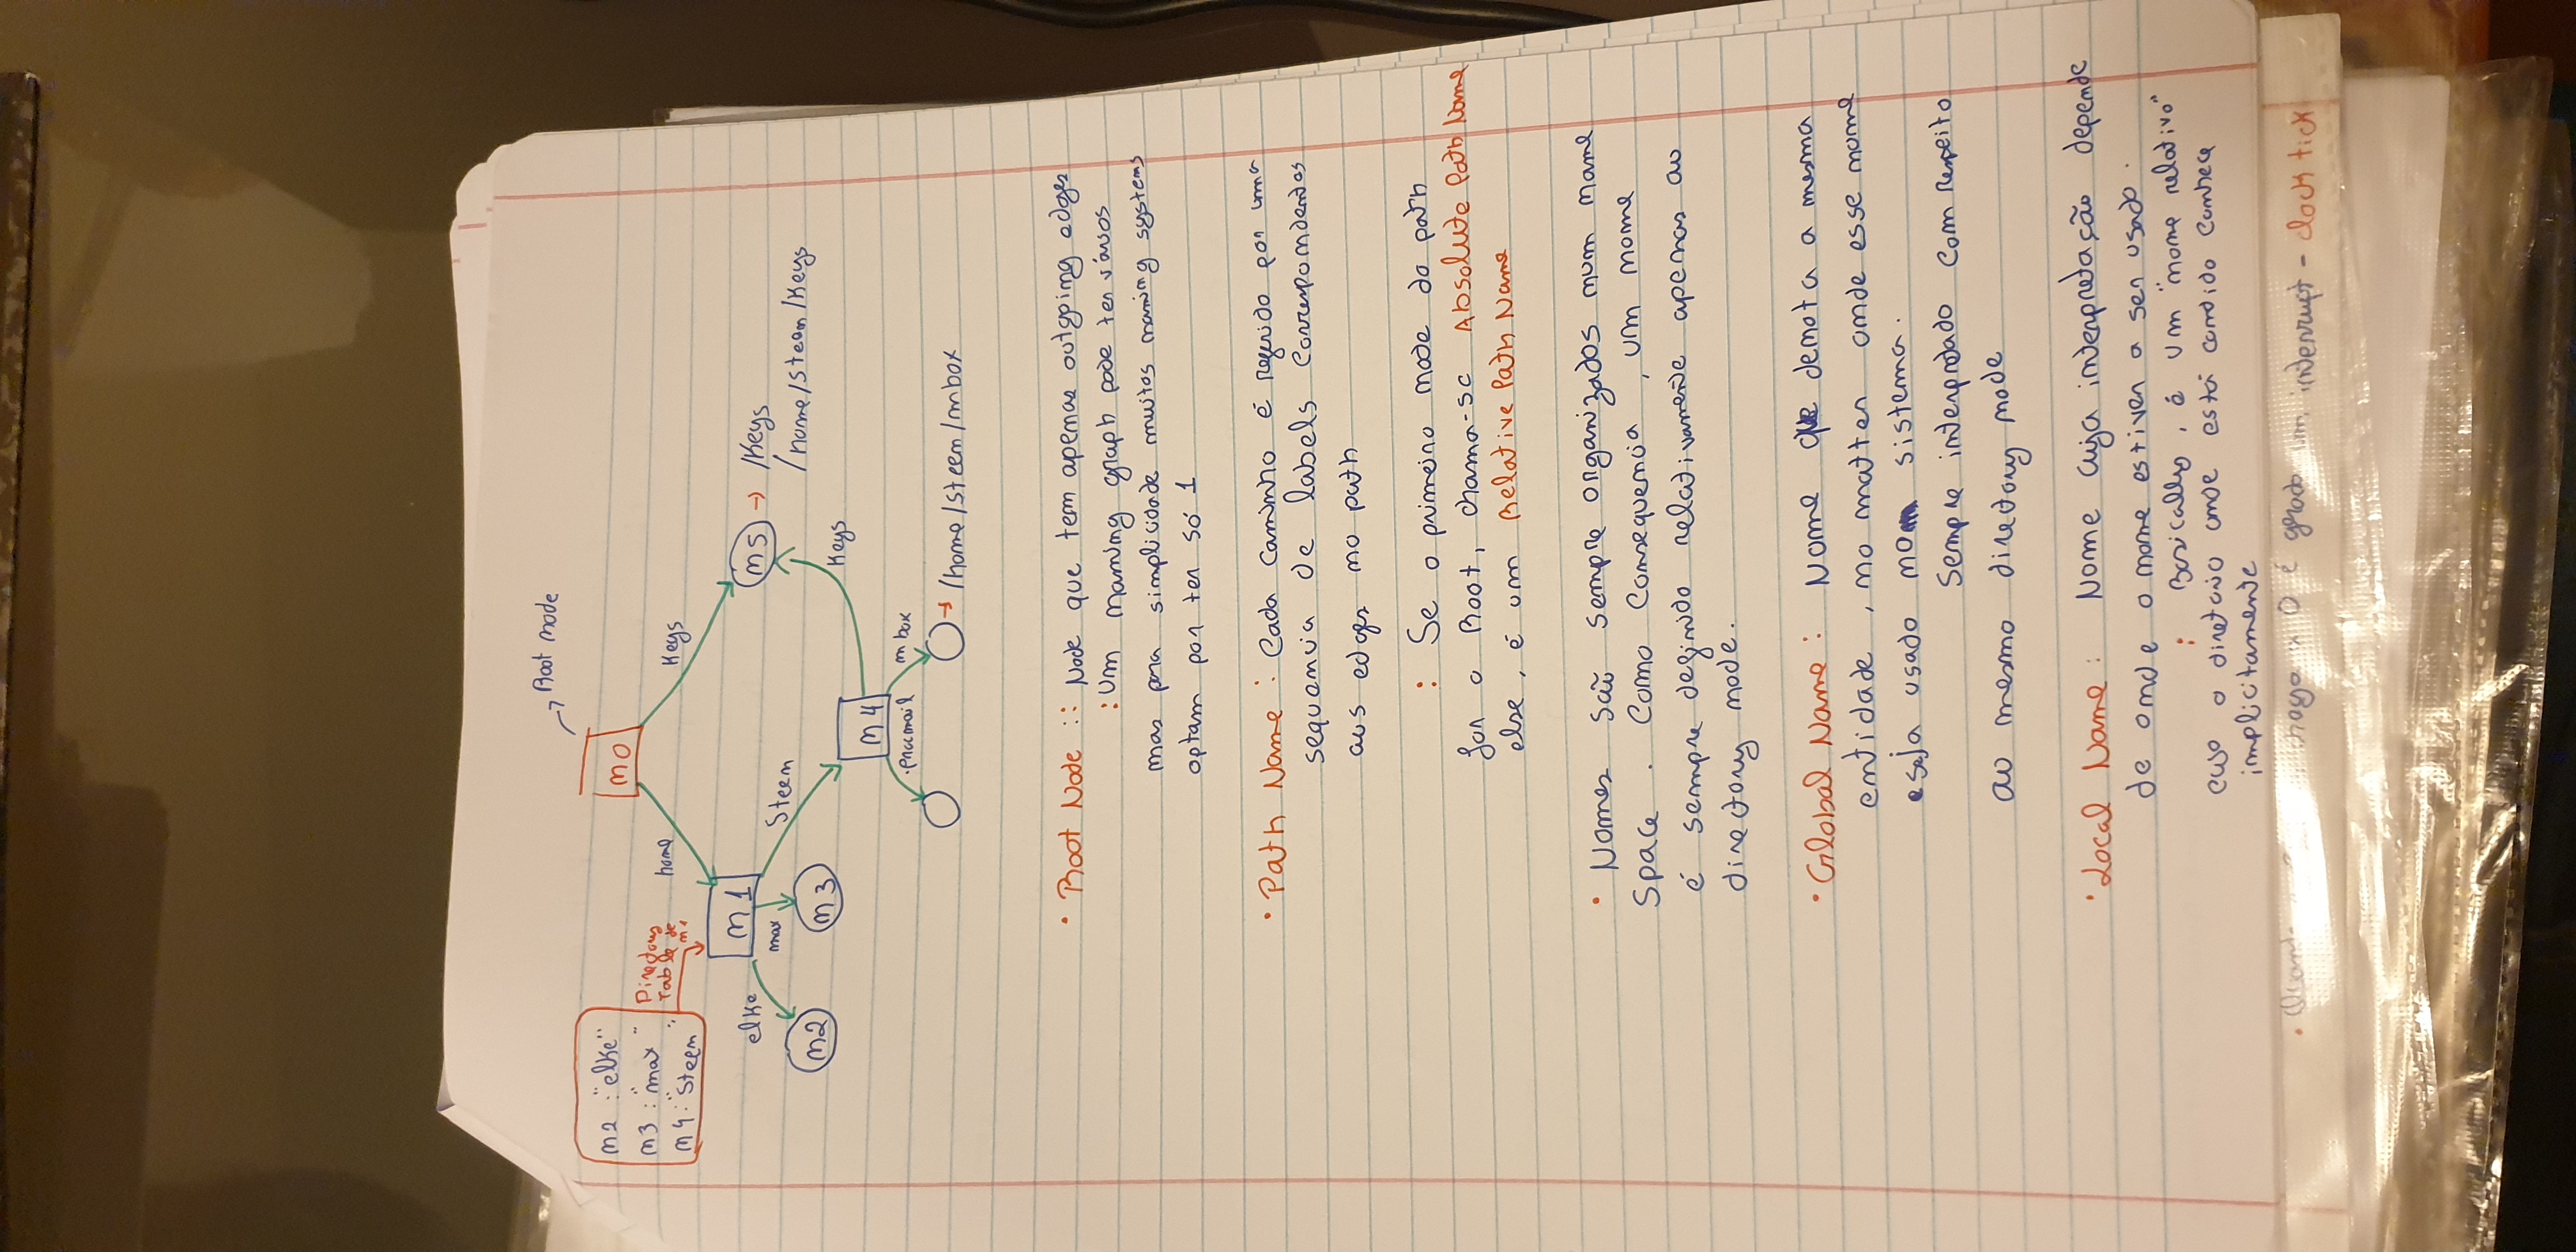 Root node
n0
n2 : "elke"
n3 : "max"
n4 : "Steen"
Directory
Table de
n1
home
Keys
n1
n5 → /Keys
/home/Steen/Keys
elke
max
Steen
n2
n3
Keys
n4
.procmail
mbox
→ /home/steen/mbox
• Root Node :: Node que tem apenas outgoing edges
: Um naming graph pode ter vários
mas para simplicidade muitos naming systems
optam por ter só 1
• Path Name : Cada caminho é referido por uma
sequencia de labels correspondentes
aos edges no path
: Se o primeiro node do path
for o Root, chama-se Absolute Path Name
else, é um Relative Path Name
• Nomes são sempre organizados num name
space. Como consequencia, um nome
é sempre definido relativamente apenas ao
directory node.
• Global Name : Nome que denota a mesma
entidade, no matter onde esse nome
seja usado no sistema.
Sempre interpretado com respeito
ao mesmo directory node
• Local Name : Nome cuja interpretação depende
de onde o nome estiver a ser usado.
: Basically, é um "nome relativo"
cujo o diretorio onde está contido conhece
implicitamente
• 0 é gerado um interrupt - clock tick